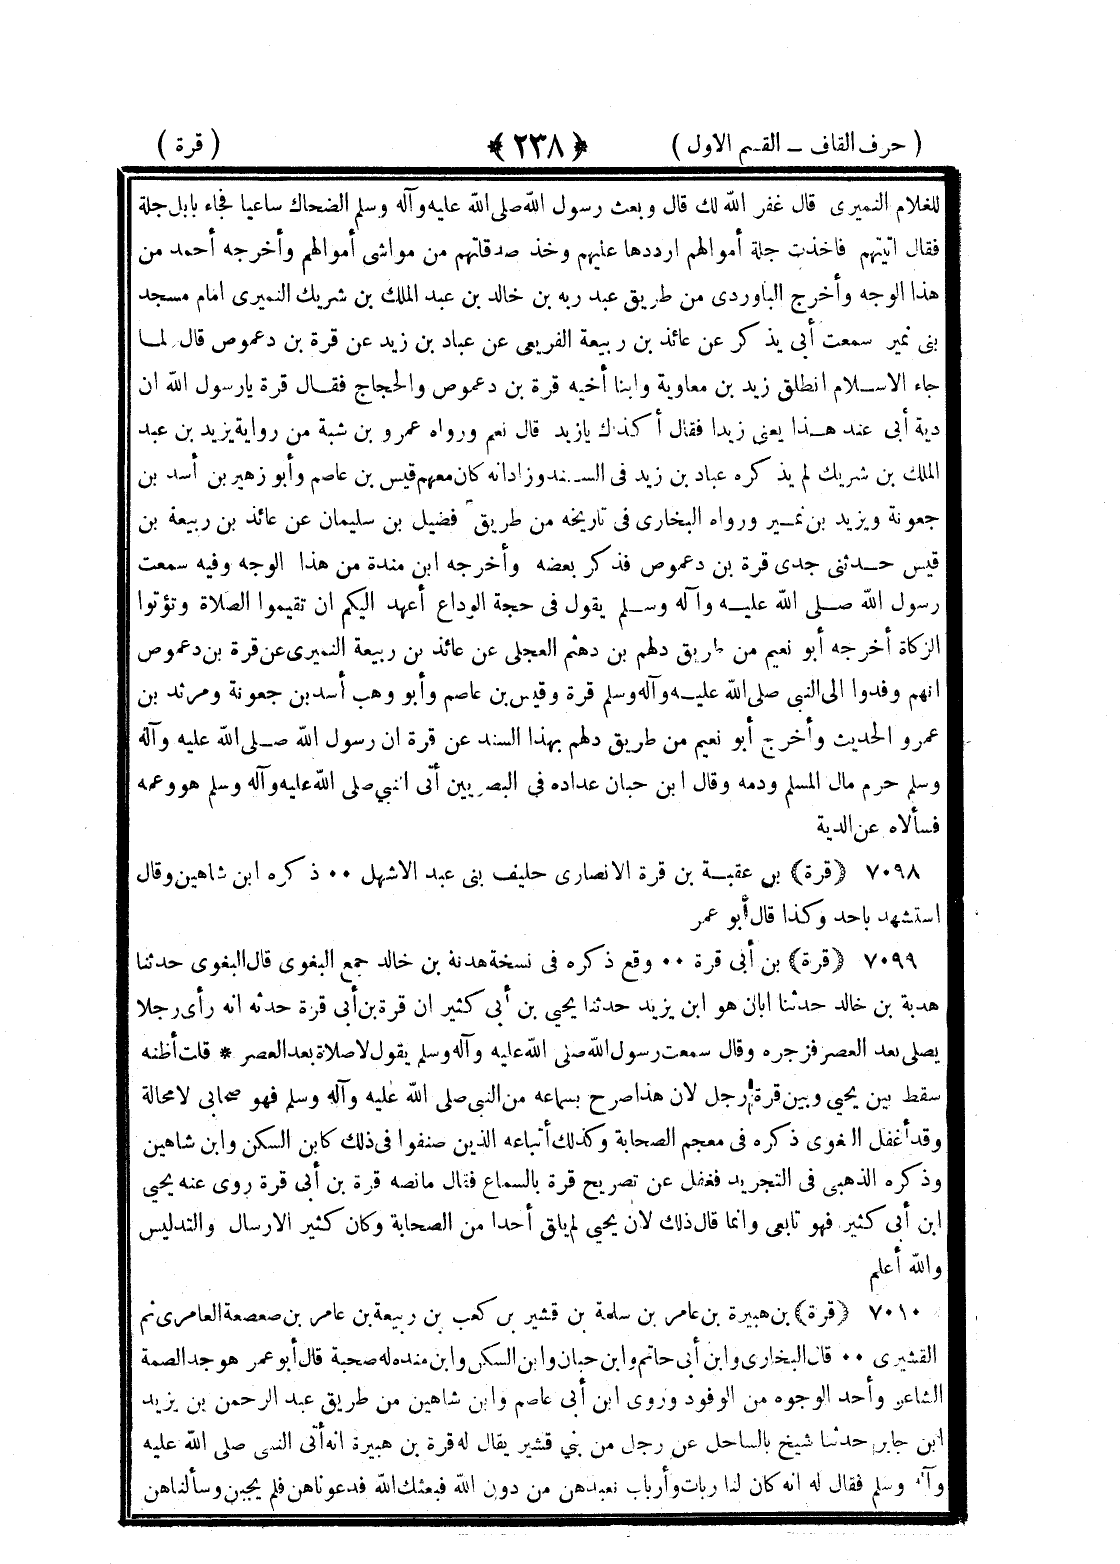 ( حرف القاف ــ القسم الاول ) ﴿ ٢٣٨ ﴾ ( قرة )
للغلام النميرى قال غفر الله لك قال وبعث رسول الله صلى الله عليه وآله وسلم الضحاك ساعيا فجاء بابل جلة
فقال اتيتهم فاخذت جلة أموالهم ارددها عليهم وخذ صدقاتهم من مواشى أموالهم وأخرجه أحمد من
هذا الوجه وأخرج الباوردى من طريق عبد ربه بن خالد بن عبد الملك بن شريك النميرى امام مسجد
بنى نمير سمعت أبي يذكر عن عائذ بن ربيعة القريعى عن عباد بن زيد عن قرة بن دعموص قال لما
جاء الاسلام انطلق زيد بن معاوية وابنا أخيه قرة بن دعموص والحجاج فقال قرة يارسول الله ان
دية أبى عند هذا يعنى زيدا فقال أكذك يازيد قال نعم ورواه عمرو بن شبة من رواية يزيد بن عبد
الملك بن شريك لم يذكره عباد بن زيد فى السند وزادانه كان معهم قيس بن عاصم وأبو زهير بن أسد بن
جعونة ويزيد بن نمير ورواه البخارى فى تاريخه من طريق فضيل بن سليمان عن عائذ بن ربيعة بن
قيس حدثنى جدى قرة بن دعموص فذكر بعضه وأخرجه ابن مندة من هذا الوجه وفيه سمعت
رسول الله صلى الله عليه وآله وسلم يقول فى حجة الوداع أعهد اليكم ان تقيموا الصلاة وتؤتوا
الزكاة أخرجه أبو نعيم من طريق دلهم بن دهثم العجلى عن عائذ بن ربيعة النميرى عن قرة بن دعموص
انهم وفدوا الى النبى صلى الله عليه وآله وسلم قرة وقيس بن عاصم وأبو وهب أسد بن جعونة ومرثد بن
عمرو الحديث وأخرج أبو نعيم من طريق دلهم بهذا السند عن قرة ان رسول الله صلى الله عليه وآله
وسلم حرم مال المسلم ودمه وقال ابن حبان عداده في البصريين أتى النبي صلى الله عليه وآله وسلم هو وعمه
فسألاه عن الدية
٧٠٩٨ ﴿قرة﴾ بن عقبة بن قرة الانصارى حليف بنى عبد الاشهل ٠٠ ذكره ابن شاهين وقال
استشهد باحد وكذا قال أبو عمر
٧٠٩٩ ﴿قرة﴾ بن أبى قرة ٠٠ وقع ذكره فى نسخة هدبة بن خالد جمع البغوى قال البغوى حدثنا
هدبة بن خالد حدثنا ابان هو ابن يزيد حدثنا يحيى بن أبى كثير ان قرة بن أبى قرة حدثه انه رأى رجلا
يصلى بعد العصر فزجره وقال سمعت رسول الله صلى الله عليه وآله وسلم يقول لاصلاة بعد العصر * قلت أظنه
سقط بين يحيى وبين قرة رجل لان هذا صرح بسماعه من النبى صلى الله عليه وآله وسلم فهو صحابى لامحالة
وقد أغفل البغوى ذكره فى معجم الصحابة وكذلك أتباعه الذين صنفوا فى ذلك كابن السكن وابن شاهين
وذكره الذهبى فى التجريد فغفل عن تصريح قرة بالسماع فقال مانصه قرة بن أبى قرة روى عنه يحيى
ابن أبى كثير فهو تابعى وانما قال ذلك لان يحيى لم يلق أحدا من الصحابة وكان كثير الارسال والتدليس
والله أعلم
٧٠١٠ ﴿قرة﴾ بن هبيرة بن عامر بن سلمة بن قشير بن كعب بن ربيعة بن عامر بن صعصعة العامرى ثم
القشيرى ٠٠ قال البخارى وابن أبى حاتم وابن حبان وابن السكن وابن منده له صحبة قال أبو عمر هو جد الصمة
الشاعر وأحد الوجوه من الوفود وروى ابن أبى عاصم وابن شاهين من طريق عبد الرحمن بن يزيد
ابن جابر حدثنا شيخ بالساحل عن رجل من بني قشير يقال له قرة بن هبيرة انه أتى النبى صلى الله عليه
وآله وسلم فقال له انه كان لنا ربات وأرباب نعبدهن من دون الله فبعثك الله فدعوناهن فلم يجبن وسألناهن